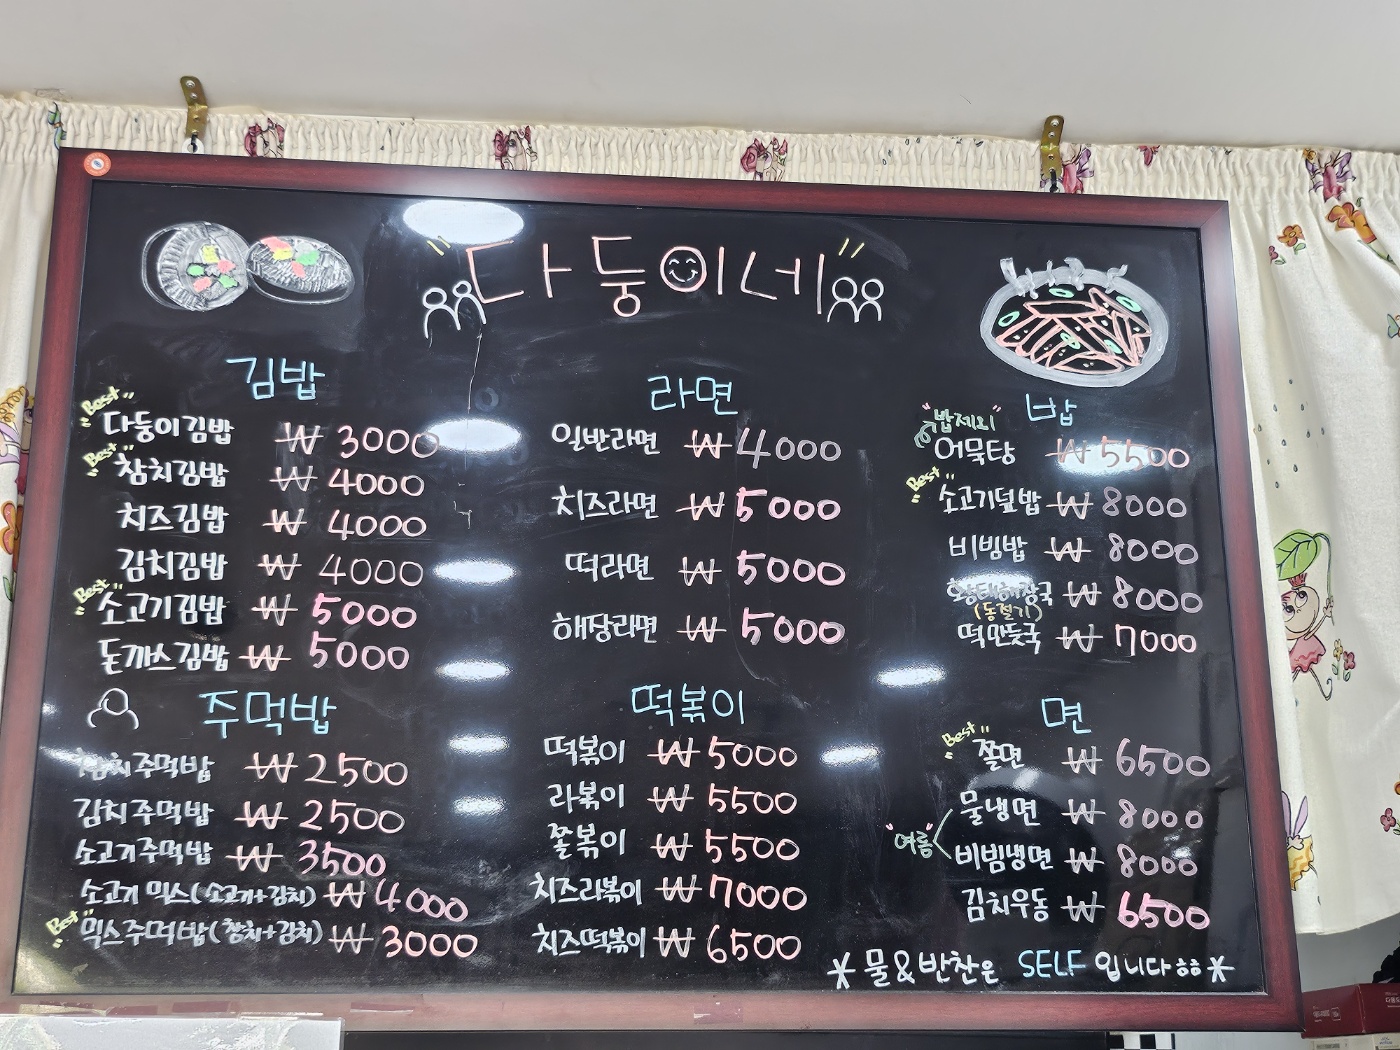 다둥이네
김밥
"Best" 다둥이김밥 ₩ 3000
"Best" 참치김밥 ₩ 4000
치즈김밥 ₩ 4000
김치김밥 ₩ 4000
"Best" 소고기김밥 ₩ 5000
돈까스김밥 ₩ 5000
주먹밥
참치주먹밥 ₩ 2500
김치주먹밥 ₩ 2500
소고기주먹밥 ₩ 3500
소고기 믹스(소고기+김치) ₩ 4000
"Best" 믹스주먹밥(참치+김치) ₩ 3000
라면
일반라면 ₩ 4000
치즈라면 ₩ 5000
떡라면 ₩ 5000
해장라면 ₩ 5000
떡볶이
떡볶이 ₩ 5000
라볶이 ₩ 5500
쫄볶이 ₩ 5500
치즈라볶이 ₩ 7000
치즈떡볶이 ₩ 6500
밥
"밥제외"
어묵탕 ₩ 5500
"Best" 소고기덮밥 ₩ 8000
비빔밥 ₩ 8000
황태해장국 ₩ 8000
(동절기)
떡만둣국 ₩ 7000
면
"Best" 쫄면 ₩ 6500
물냉면 ₩ 8000
"여름"
비빔냉면 ₩ 8000
김치우동 ₩ 6500
* 물&반찬은 SELF 입니다ㅎㅎ *